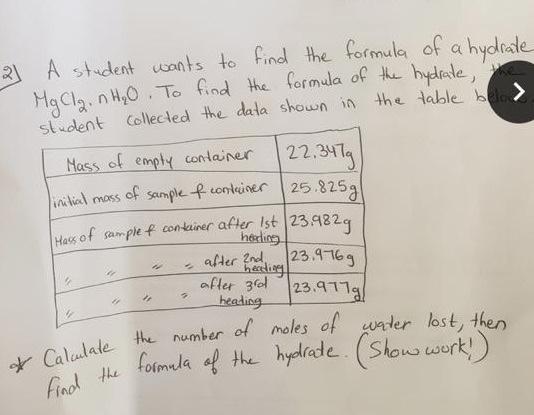 2) A student wants to find the formula of a hydrate
MgCl2. nH2O. To find the formula of the hydrate, the
student collected the data shown in the table below.
Mass of empty container 22.347g
initial mass of sample & container 25.825g
Mass of sample & container after 1st heating 23.982g
" " " " after 2nd heating 23.976g
" " " " after 3rd heating 23.977g
* Calculate the number of moles of water lost, then
find the formula of the hydrate. (Show work!)